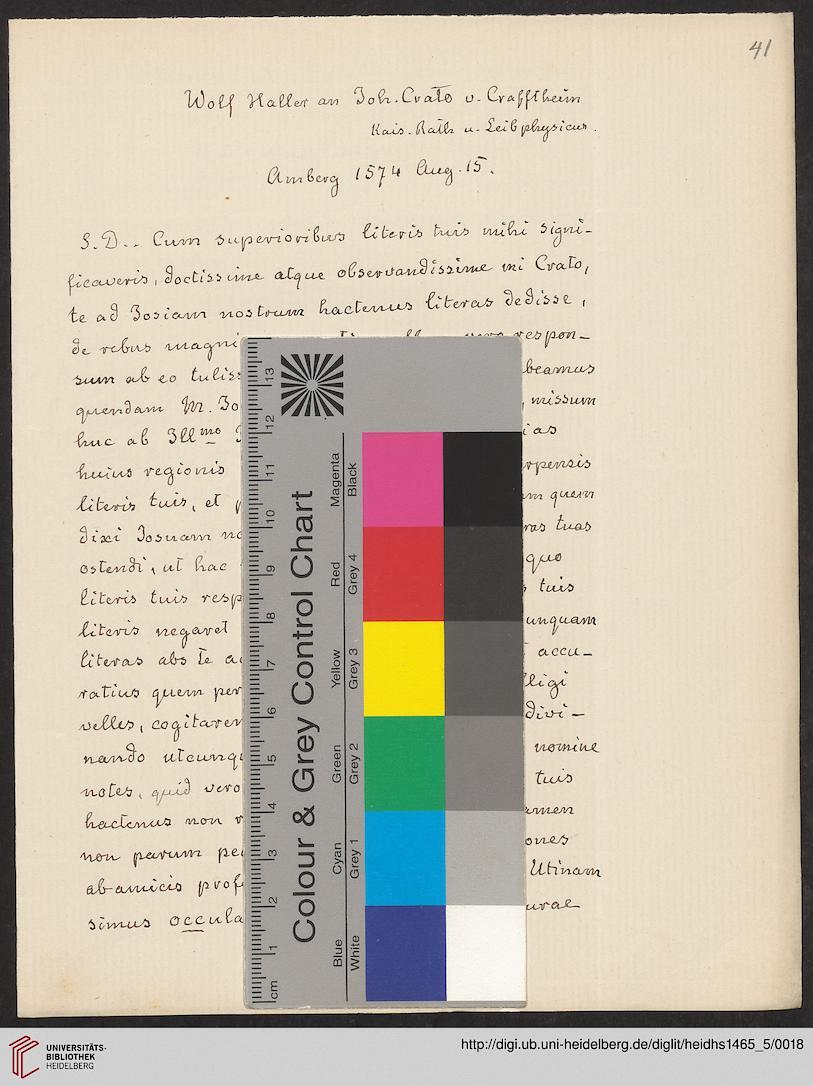 41
Wolf Haller an Joh. Crato v. Crafftheim
Kais. Rath u. Leibphysicus.
Amberg 1574 Aug. 15.
S. D. . Cum superioribus literis tuis mihi signi-
ficaveris, doctissime atque observandissime mi Crato,
te ad Josiam nostrum hactenus literas dedisse,
de rebus magni respon-
sum ab eo tulis beamus
quendam M. Jo missum
huc ab Illmo ias
huius regionis rpensis
literis tuis, et quem
dixi Josuam no ras tuas
ostendi, ut hac quo
literis tuis resp tuis
literis negaret unquam
literas abs te a accu-
ratius quem per lligi
velles, cogitaren divi-
nando utcunq nomine
notes, quid vero tuis
hactenus non r amen
non parum pe ones
ab amicis prof Utinam
simus occula urae
Colour & Grey Control Chart
Blue Cyan Green Yellow Red Magenta
White Grey 1 Grey 2 Grey 3 Grey 4 Black
cm 1 2 3 4 5 6 7 8 9 10 11 12 13
UNIVERSITÄTS-
BIBLIOTHEK
HEIDELBERG
http://digi.ub.uni-heidelberg.de/diglit/heidhs1465_5/0018